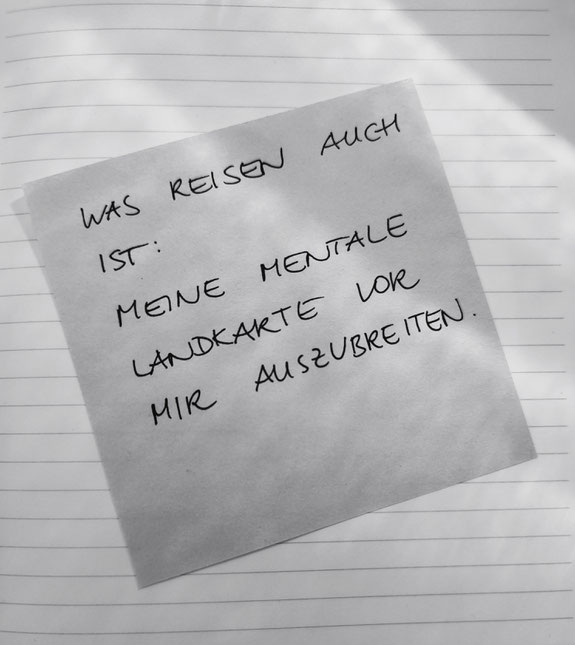 WAS REISEN AUCH
IST:
MEINE MENTALE
LANDKARTE VOR
MIR AUSZUBREITEN.